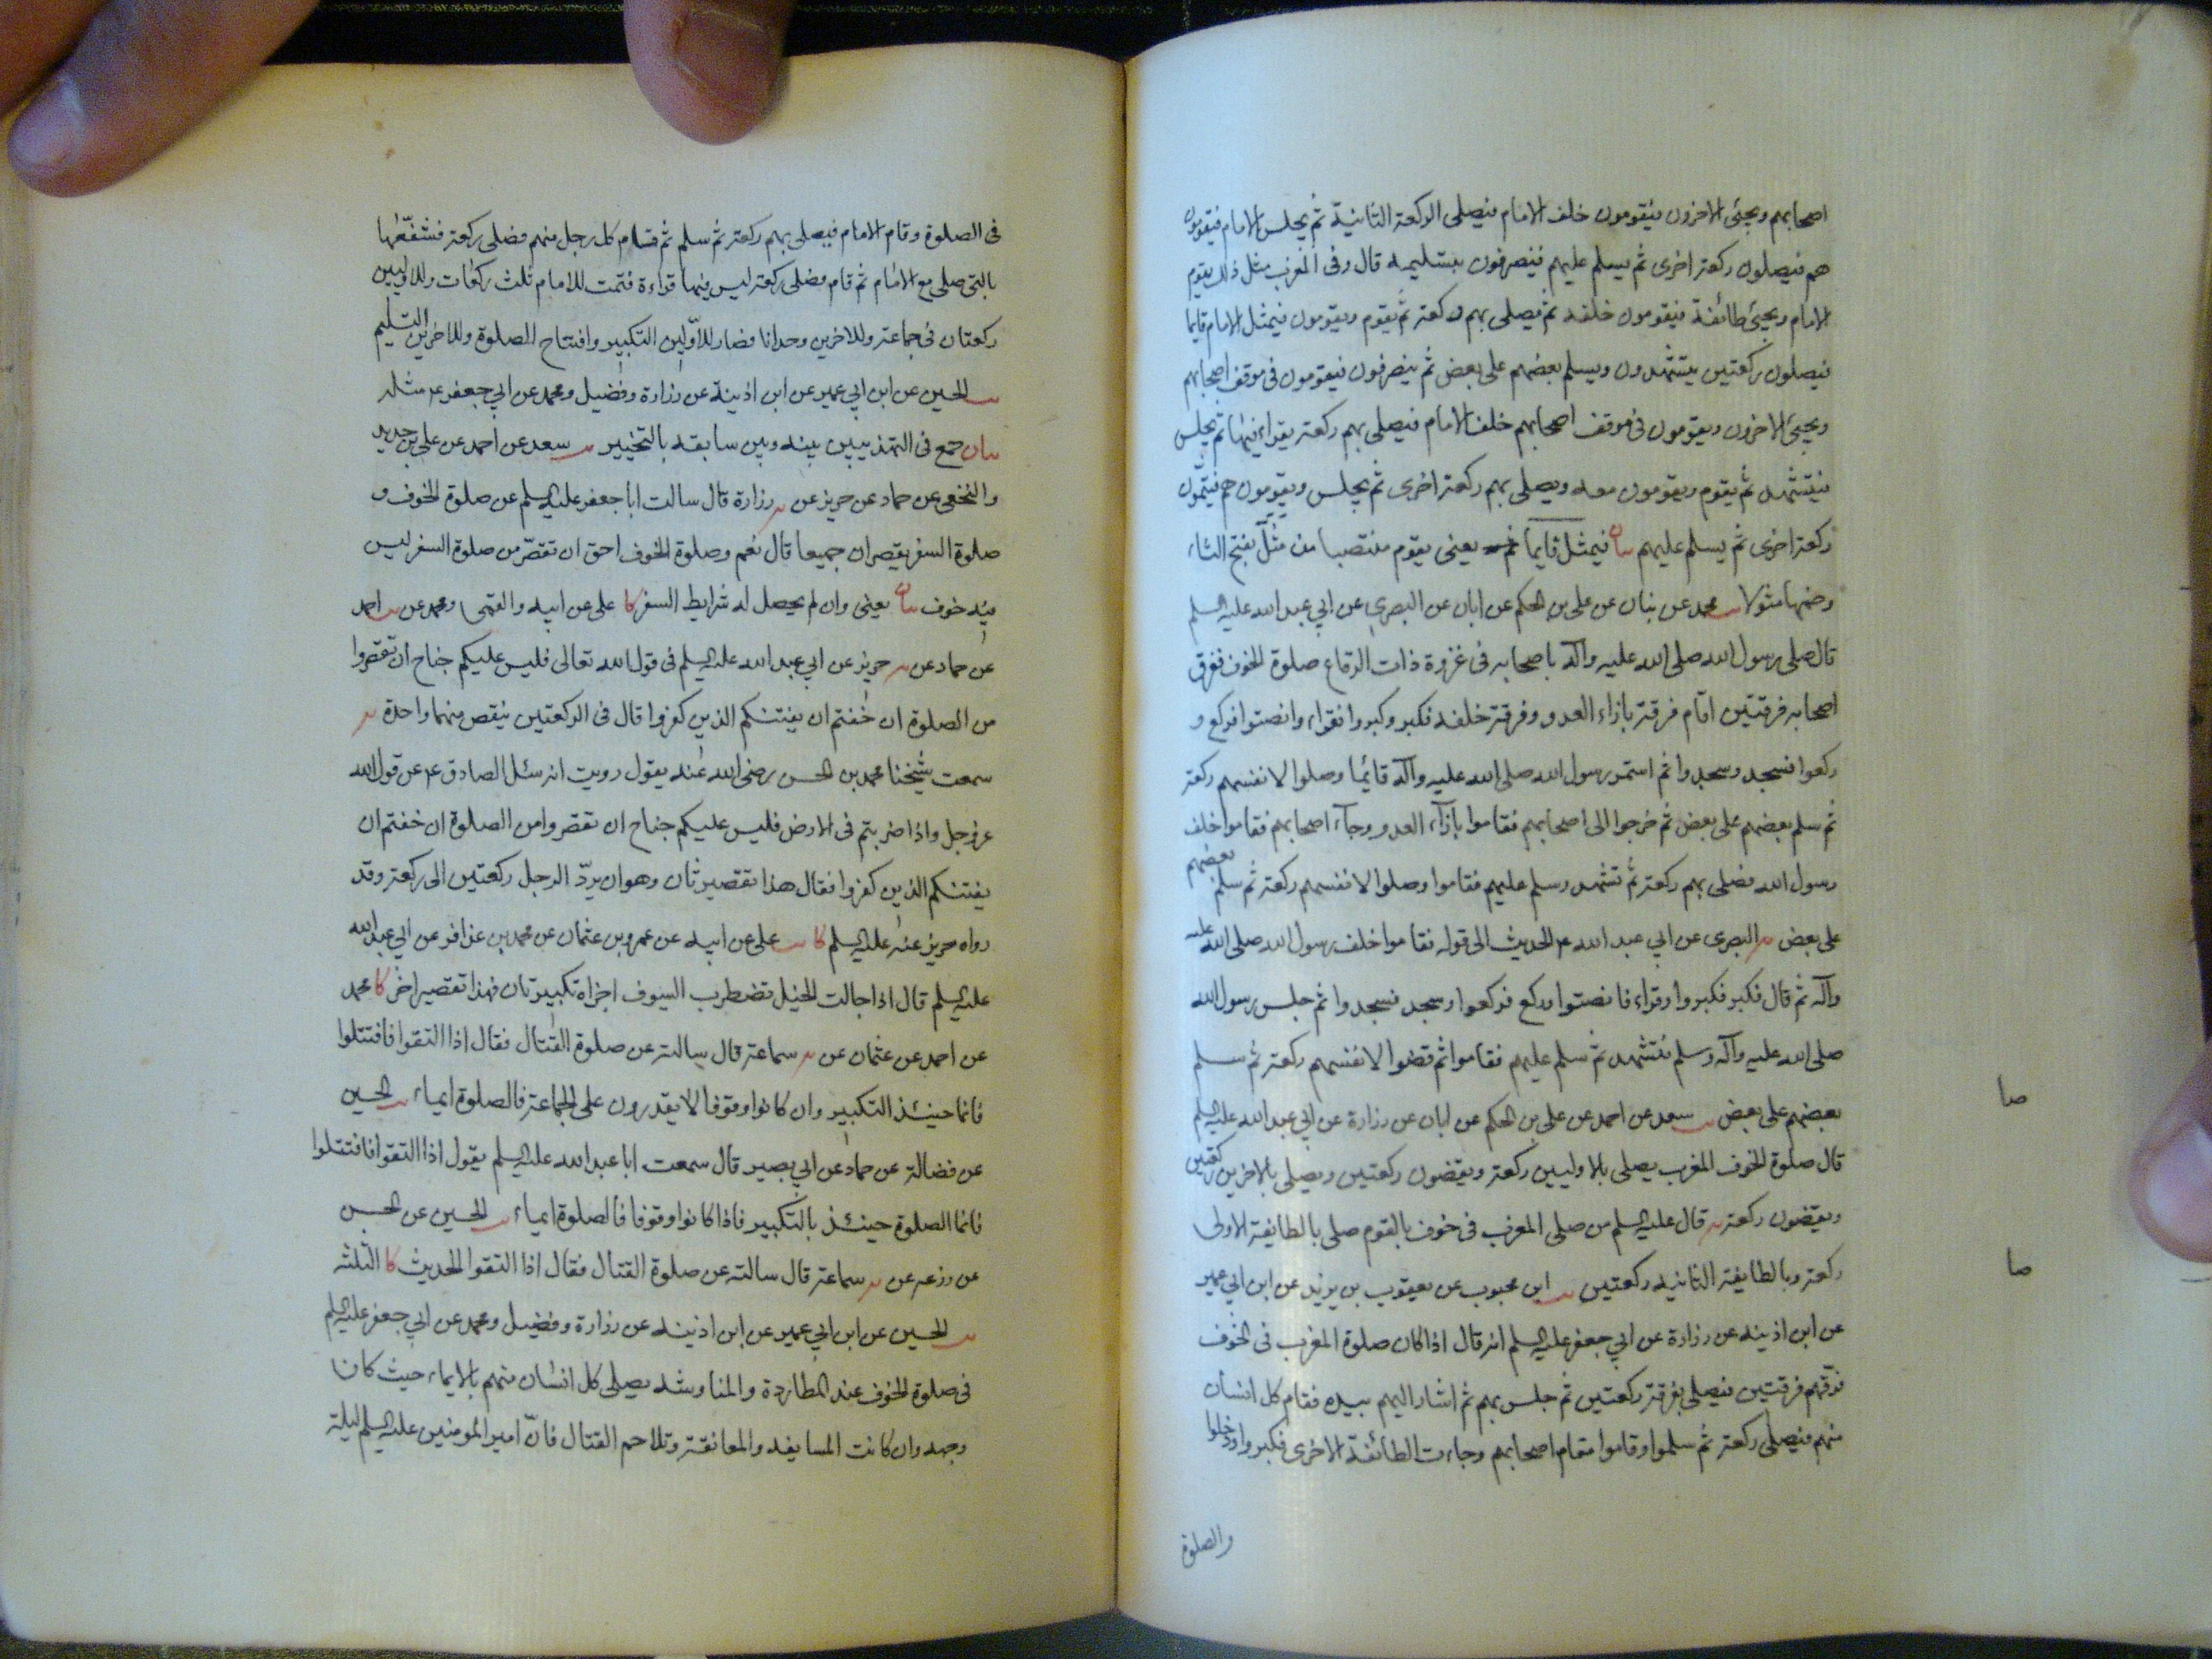 اصحابهم ويجئ الاخرون فيقومون خلف الامام فيصلى الركعة الثانية ثم يجلس الامام فيقومون
هم فيصلون ركعة اخرى ثم يسلم عليهم فينصرفون بتسليمه قال وفى المغرب مثل ذلك يقوم
الامام ويجئ طائفة فيقومون خلفه ثم يصلى بهم ركعة ثم يقوم ويقومون فيمثل الامام قايما
فيصلون ركعتين يتشهدون ويسلم بعضهم على بعض ثم ينصرفون فيقومون فى موقف اصحابهم
ويجئ الاخرون ويقومون فى موقف اصحابهم خلف الامام فيصلى بهم ركعة يقراء فيها ثم يجلس
فيتشهد ثم يقوم ويقومون معه ويصلى بهم ركعة اخرى ثم يجلس ويقومون هم فيتمون
ركعة اخرى ثم يسلم عليهم بيان فيمثل قايما يعنى يقوم منتصبا من مثل بفتح الثاء
وضمها مثولا يب محمد عن بنان عن على بن الحكم عن ابان عن البصرى عن ابي عبد الله عليه السلم
قال صلى رسول الله صلى الله عليه وآله باصحابه فى غزوة ذات الرقاع صلوة الخوف ففرق
اصحابه فرقتين اقام فرقة بازاء العدو وفرقة خلفه فكبر وكبروا فقراء وانصتوا فركع و
ركعوا فسجد وسجدوا ثم استمر رسول الله صلى الله عليه وآله قائما وصلوا لانفسهم ركعة
ثم سلم بعضهم على بعض ثم خرجوا الى اصحابهم فقاموا بازآء العدو وجآء اصحابهم فقاموا خلف
رسول الله فصلى بهم ركعة ثم تشهد وسلم عليهم فقاموا وصلوا لانفسهم ركعة ثم سلم بعضهم
على بعض يه البصرى عن ابي عبد الله ع الحديث الى قوله فقاموا خلف رسول الله صلى الله عليه
وآله ثم قال فكبر فكبروا وقراء فانصتوا وركع فركعوا وسجد فسجدوا ثم جلس رسول الله
صلى الله عليه وآله وسلم فتشهد ثم سلم عليهم فقاموا ثم قضوا لانفسهم ركعة ثم سلم
بعضهم على بعض يب سعد عن احمد عن على بن الحكم عن ابان عن زرارة عن ابي عبد الله عليه السلم
صا
قال صلوة الخوف المغرب يصلى بالاوليين ركعة ويقضون ركعتين ويصلى بالاخرين ركعتين
ويقضون ركعة يه قال عليه السلم من صلى المغرب فى خوف بالقوم صلى بالطايفة الاولى
ركعة وبالطايفة الثانيه ركعتين يب ابن محبوب عن يعقوب بن يزيد عن ابن ابي عمير
صا
عن ابن اذينه عن زرارة عن ابي جعفر عليه السلم انه قال اذا كان صلوة المغرب فى الخوف
فرقهم فرقتين فيصلى بفرقة ركعتين ثم جلس بهم ثم اشار اليهم بيده فقام كل انسان
منهم فيصلى ركعة ثم سلموا وقاموا مقام اصحابهم وجاءت الطائفة الاخرى فكبروا ودخلوا
والصلوة
فى الصلوة وقام الامام فيصلى بهم ركعة ثم سلم ثم قام كل رجل منهم فصلى ركعة فشفعها
بالتى صلى مع الامام ثم قام فصلى ركعة ليس فيها قراءة فتمت للامام ثلث ركعات وللاوليين
ركعتان فى جماعة وللاخرين وحدانا فصار للاوّلين التكبير وافتتاح الصلوة وللاخرين التسليم
يب الحسين عن ابن ابي عمير عن ابن اذينة عن زرارة وفضيل ومحمد عن ابي جعفر ع مثله
بيان جمع فى التهذيبين بينه وبين سابقه بالتخيير يب سعد عن احمد عن على بن حديد
والنخعى عن حماد عن حريز عن يه زرارة قال سالت ابا جعفر عليه السلم عن صلوة الخوف و
صلوة السفر يقصران جميعا قال نعم وصلوة الخوف احق ان تقصّر من صلوة السفر ليس
فيه خوف بيان يعنى وان لم يحصل له شرايط السفر كا على عن ابيه والقمى ومحمد عن يب احمد
عن حماد عن يه حريز عن ابي عبد الله عليه السلم فى قول الله تعالى فليس عليكم جناح ان تقصروا
من الصلوة ان خفتم ان يفتنكم الذين كفروا قال فى الركعتين ينقص منهما واحدة يه
سمعت شيخنا محمد بن الحسن رضى الله عنه يقول رويت انه سئل الصادق ع عن قول الله
عز وجل واذا ضربتم فى الارض فليس عليكم جناح ان تقصروا من الصلوة ان خفتم ان
يفتنكم الذين كفروا فقال هذا تقصير ثان وهو ان يردّ الرجل ركعتين الى ركعة وقد
رواه حريز عنه عليه السلم كا يب على عن ابيه عن عمرو بن عثمان عن محمد بن عذافر عن ابي عبد الله
عليه السلم قال اذا جالت الخيل تضطرب السيوف اجزاه تكبيرتان فهذا تقصير اخر كا محمد
عن احمد عن عثمان عن يه سماعة قال سالته عن صلوة القتال فقال اذا التقوا فاقتتلوا
فانما حينئذ التكبير وان كانوا وقوفا لا يقدرون على الجماعة فالصلوة ايماء يب الحسين
عن فضالة عن حماد عن ابي بصير قال سمعت ابا عبد الله عليه السلم يقول اذا التقوا فاقتتلوا
فانما الصلوة حينئذ بالتكبير فاذا كانوا وقوفا فالصلوة ايماء يب الحسين عن الحسن
عن زرعه عن يه سماعة قال سالته عن صلوة القتال فقال اذا التقوا الحديث كا الثلثه
يب الحسين عن ابن ابي عمير عن ابن اذينه عن زرارة وفضيل ومحمد عن ابي جعفر عليه السلم
فى صلوة الخوف عند المطاردة والمناوشه يصلى كل انسان منهم بالايماء حيث كان
وجهه وان كانت المسايفه والمعانقة وتلاحم القتال فانّ امير المومنين عليه السلم ليلة